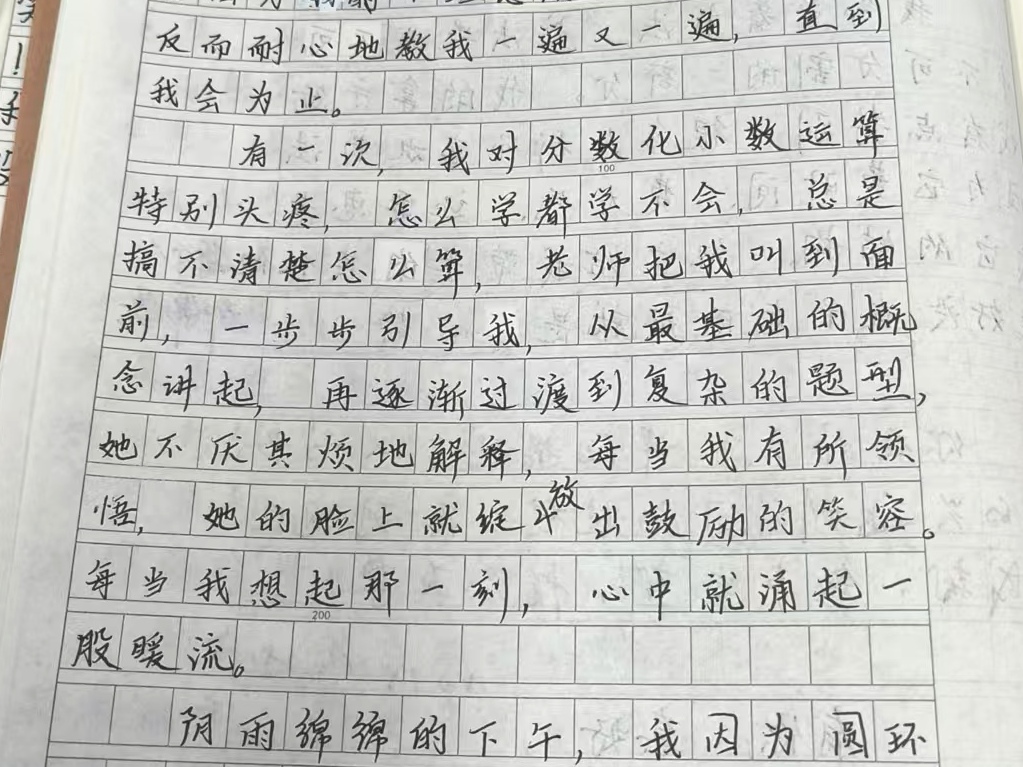 反而耐心地教我一遍又一遍，直到
我会为止。
有一次，我对分数化小数运算
100
特别头疼，怎么学都学不会，总是
搞不清楚怎么算，老师把我叫到面
前，一步步引导我，从最基础的概
念讲起，再逐渐过渡到复杂的题型，
她不厌其烦地解释，每当我有所领
悟，她的脸上就绽放出鼓励的笑容。
每当我想起那一刻，心中就涌起一
200
股暖流。
阴雨绵绵的下午，我因为圆环